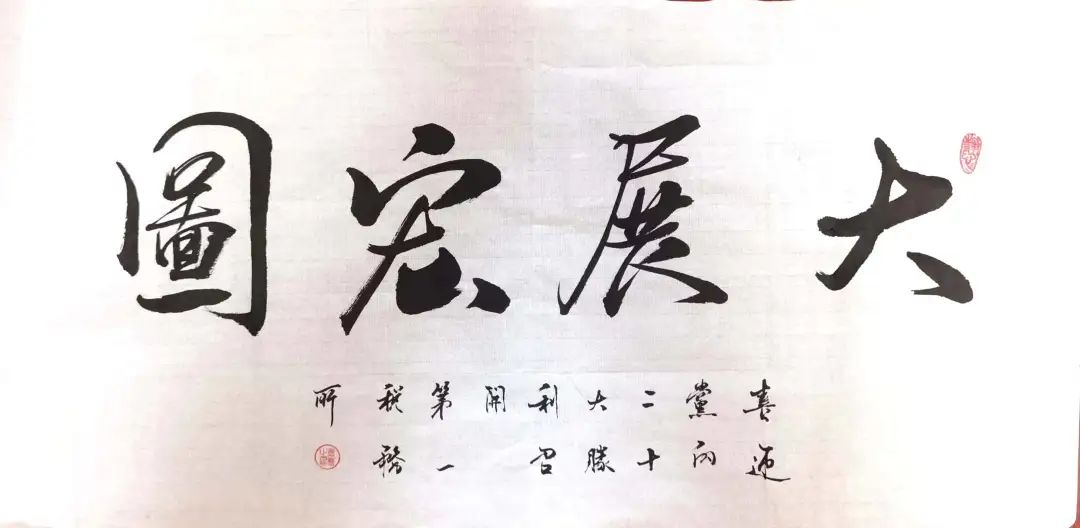 大展宏圖
喜迎
黨的
二十
大勝
利召
開
第一
稅務
所